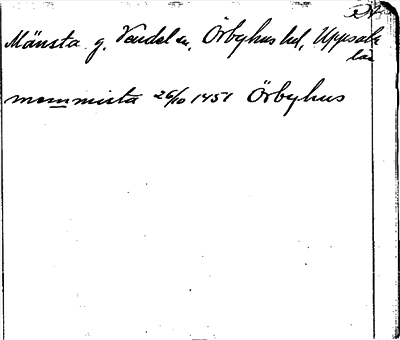 Mänsta g. Vendel sn, Örbyhus hd, Uppsala
län
mommista 26/10 1451 Örbyhus